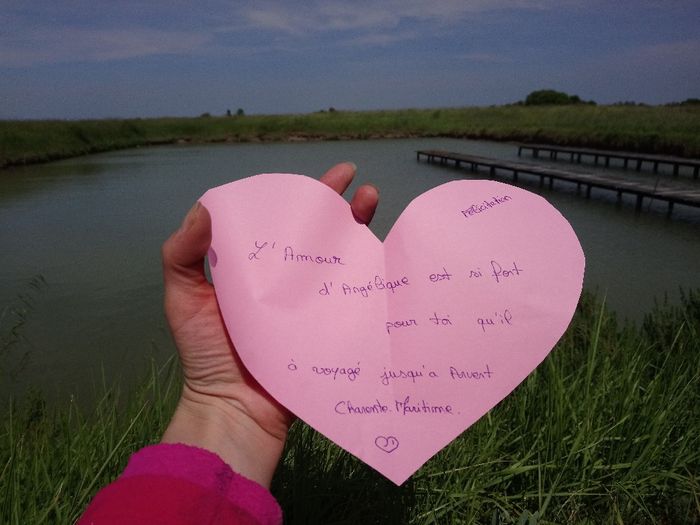 Félicitation
L'Amour
d'Angélique est si fort
pour toi qu'il
à voyagé jusqu'a Arvert
Charente-Maritime.